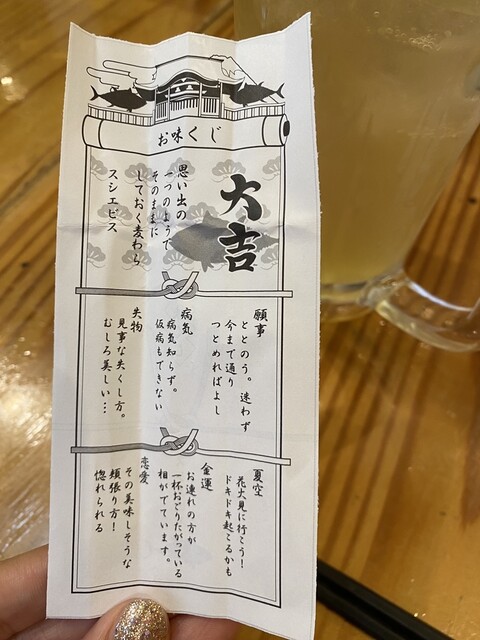 お味くじ
大吉
思い出の
一つのようで
そのままに
しておく麦わら
スシエビス
願事
ととのう。迷わず
今まで通り
つとめればよし
病気
病気知らず。
仮病もできない
失物
見事な失くし方。
むしろ美しい…
夏空
花火見に行こう!
ドキドキ起こるかも
金運
お連れの方が
一杯おごりたがっている
相がでています。
恋愛
その美味しそうな
頬張り方!
惚れられる